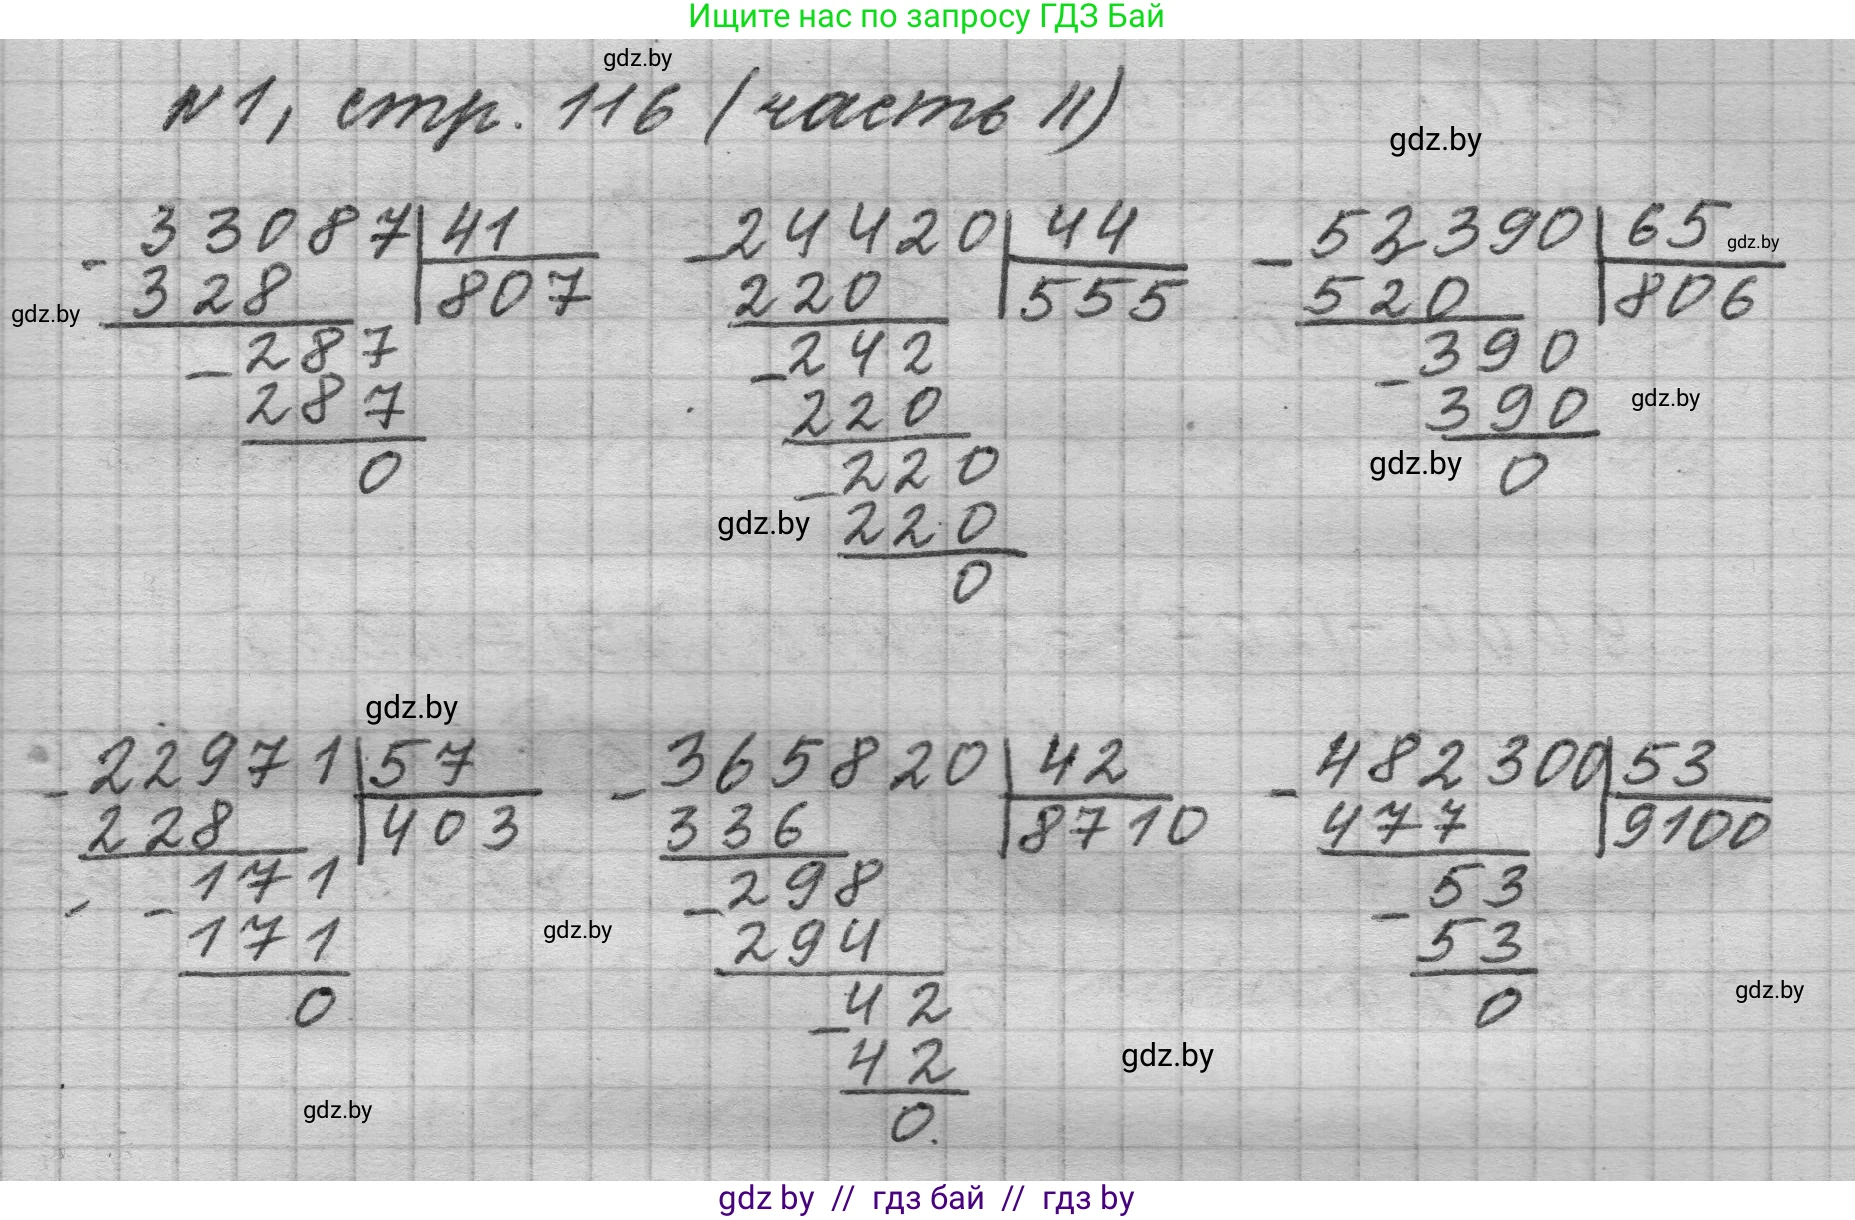 Ищите нас по запросу ГДЗ Бай
gdz.by
№1, стр. 116 (часть II)
gdz.by
- 33087 | 41
328 | 807
- 287
287
0
- 24420 | 44
220 | 555
- 242
220
- 220
220
0
- 52390 | 65
520 | 806
- 390
390
0
gdz.by
gdz.by
gdz.by
gdz.by
gdz.by
gdz.by
- 22971 | 57
228 | 403
- - 171
171
0
- 365820 | 42
336 | 8710
- 298
294
- 42
42
0.
- 482300 | 53
477 | 9100
- 53
53
0
gdz.by
gdz.by
gdz.by
gdz.by
gdz by // гдз бай // гдз by